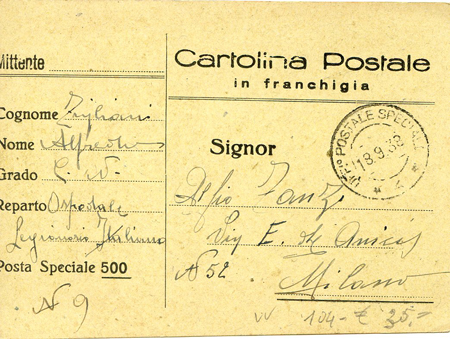 Mittente
Cognome
Nome Alfredo
Grado
Reparto Ospedale
Legionario Italiano
Posta Speciale 500
N 9
Cartolina Postale
in franchigia
Signor
UFFIO POSTALE SPECIALE
18.9.38
4
Alfio
Via E. de Amicis
N 52
Milano
104- € 25.-